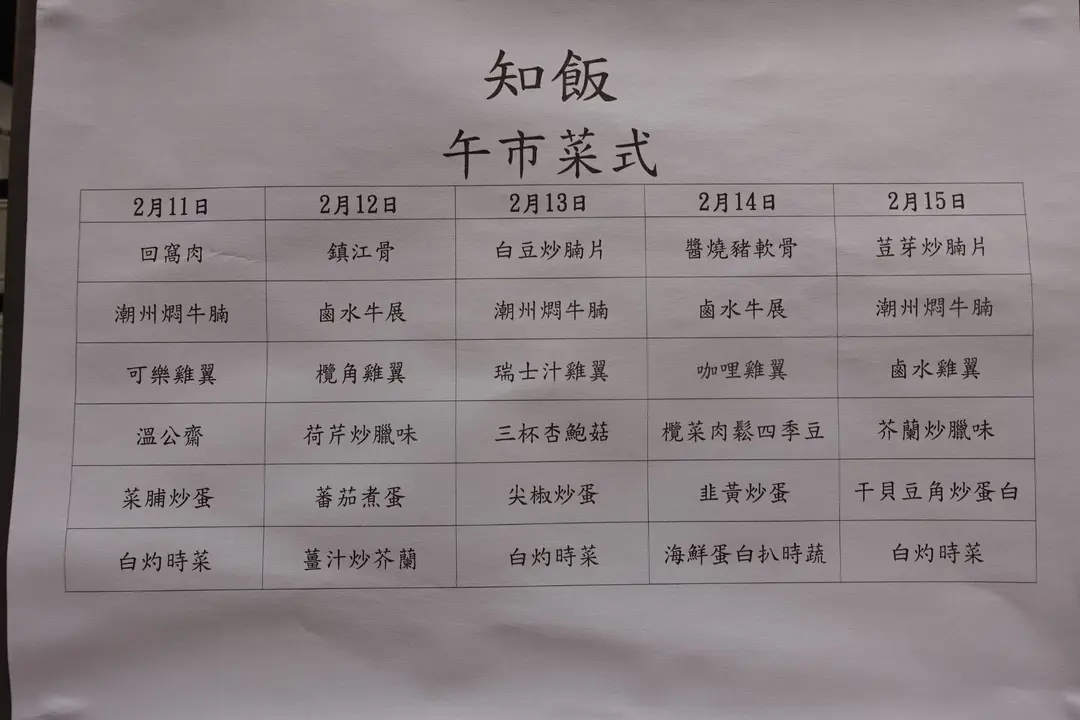 知飯
午市菜式
2月11日 2月12日 2月13日 2月14日 2月15日
回窩肉 鎮江骨 白豆炒腩片 醬燒豬軟骨 荳芽炒腩片
潮州燜牛腩 鹵水牛展 潮州燜牛腩 鹵水牛展 潮州燜牛腩
可樂雞翼 欖角雞翼 瑞士汁雞翼 咖哩雞翼 鹵水雞翼
溫公齋 荷芹炒臘味 三杯杏鮑菇 欖菜肉鬆四季豆 芥蘭炒臘味
菜脯炒蛋 蕃茄煮蛋 尖椒炒蛋 韭黃炒蛋 干貝豆角炒蛋白
白灼時菜 薑汁炒芥蘭 白灼時菜 海鮮蛋白扒時蔬 白灼時菜